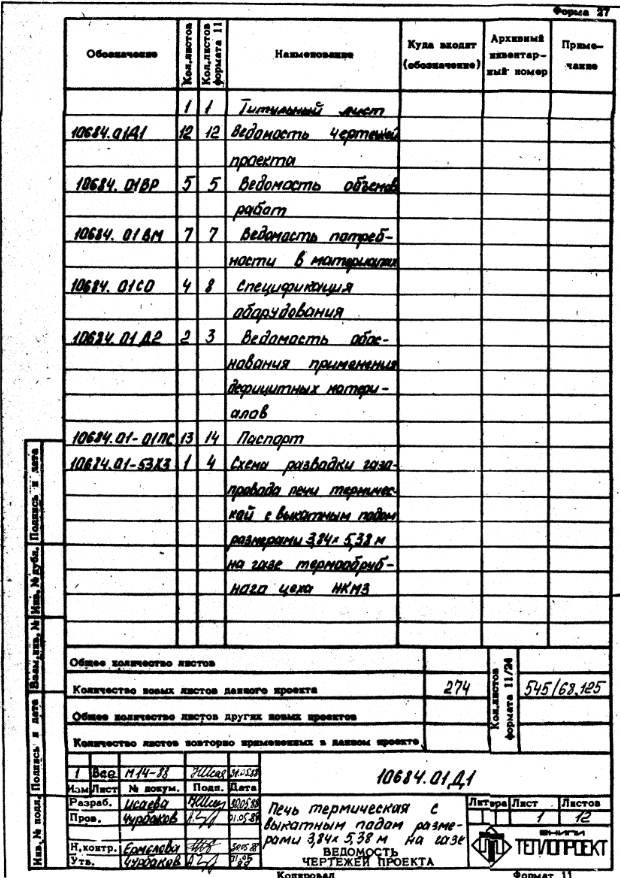 Форма 27
Обозначение Кол.листов Кол.листов формата 11 Наименование Куда входит (обозначение) Архивный инвентар-ный номер Приме-чание
1 1 Титульный лист
10684.01Д1 12 12 Ведомость чертежей
проекта
10684.01ВР 5 5 Ведомость объемов
работ
10684.01ВМ 7 7 Ведомость потреб-
ности в материалах
10684.01СО 4 8 Спецификация
оборудования
10684.01Д2 2 3 Ведомость обос-
нования применения
дефицитных матери-
алов
10684.01-01ПС 13 14 Паспорт
10684.01-53Х3 1 4 Схема разводки газо-
провода печи термичес-
кой с выкатным подом
размерами 3,84х5,38 м
на газе термообруб-
ного цеха НКМЗ
Общее количество листов
Количество новых листов данного проекта 274 Кол.листов формата 11/24 545/68,125
Общее количество листов других новых проектов
Количество листов повторно примененных в данном проекте
1 Все М14-88 31.05.88
Изм Лист № докум. Подп. Дата
10684.01Д1
Разраб. Исаева 30.05.88
Пров. Чурбаков 01.05.88
Н.контр. Ермолова
Утв. Чурбаков
Печь термическая с
выкатным подом разме-
рами 3,84х5,38 м на газе
ВЕДОМОСТЬ
ЧЕРТЕЖЕЙ ПРОЕКТА
Литера Лист Листов
1 12
ТЕПЛОПРОЕКТ
Копировал Формат 11
Инв. № подл. Подпись и дата Взам.инв. № Инв. № дубл. Подпись и дата